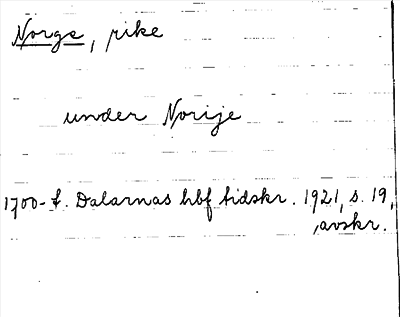 Norge, rike
under Norije
1700-t. Dalarnas hbf tidskr. 1921, s. 19,
avskr.